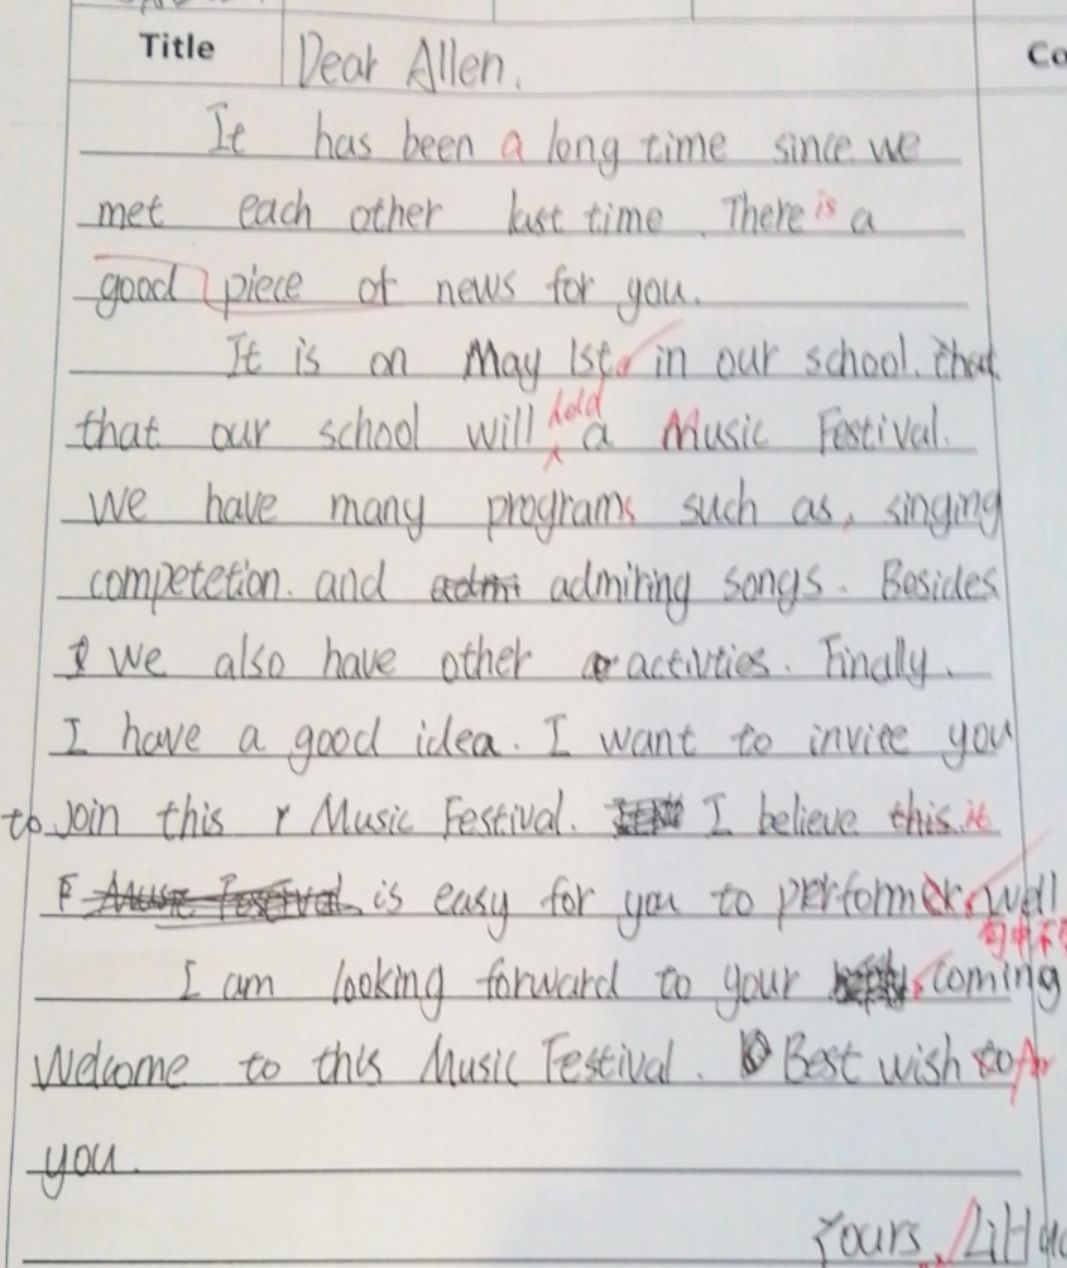 Title Dear Allen, Co
It has been a long time since we
met each other last time. There is a
good piece of news for you.
It is on May 1st, in our school. that
that our school will hold a Music Festival.
We have many programs such as, singing
competetion. and admiring songs. Besides
I we also have other activties. Finally.
I have a good idea. I want to invite you
to join this r Music Festival. I believe this it
F Music Festival is easy for you to performer, well
句中不
I am looking forward to your coming
Welcome to this Music Festival. Best wish to for
you.
Yours,